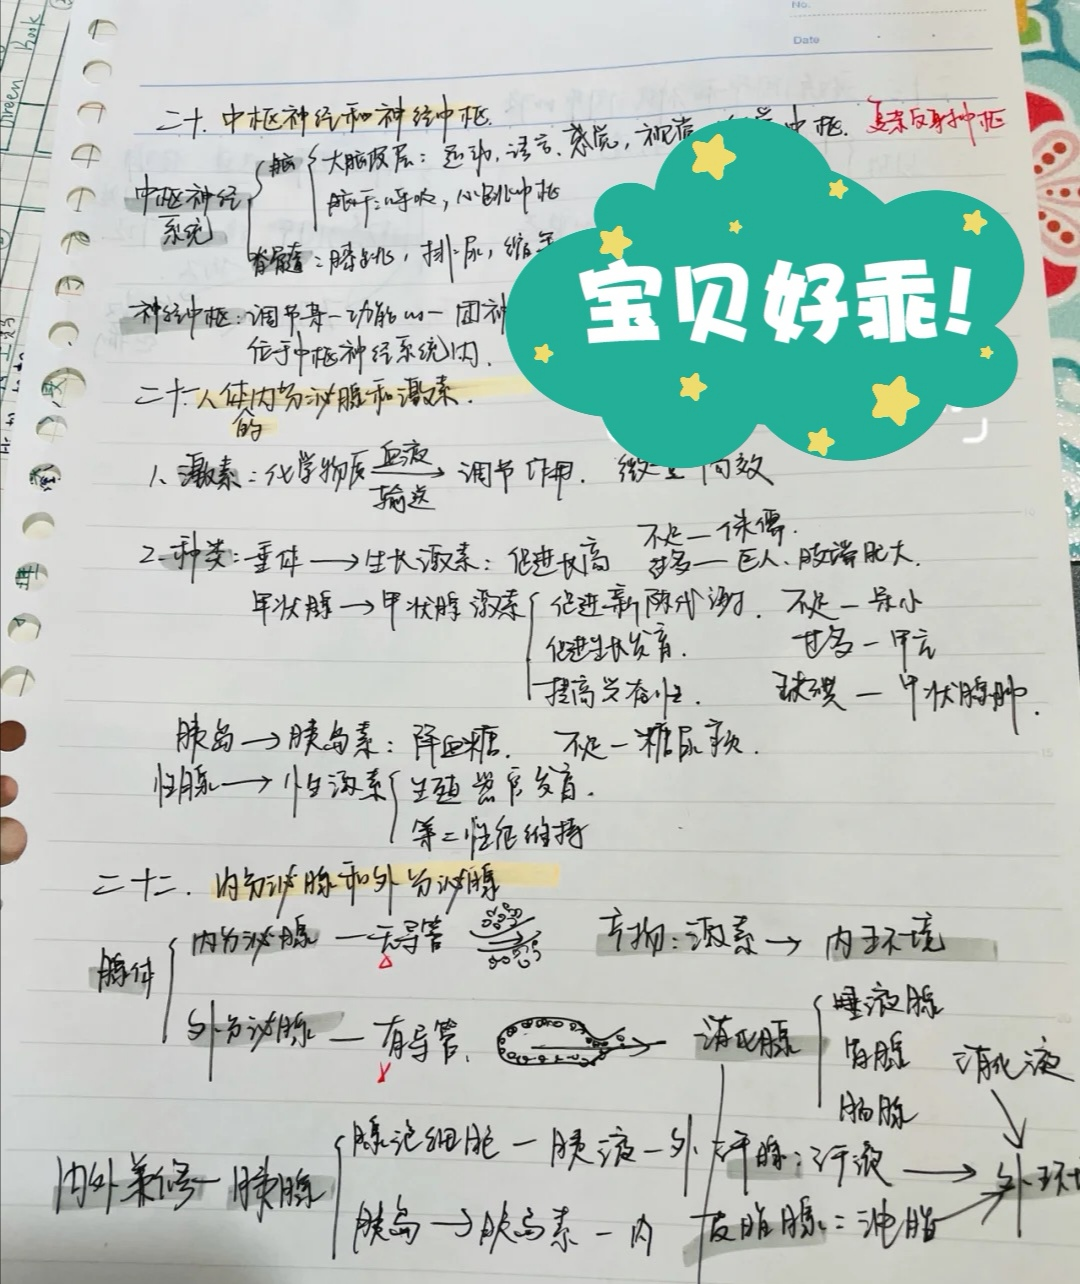 No.
Date
二十. 中枢神经和神经中枢.
中枢神经系统
脑
大脑皮层: 运动, 语言, 感觉, 视觉 中枢. 复杂反射中枢
脑干: 呼吸, 心跳中枢
脊髓: 膝跳, 排尿, 缩
宝贝好乖!
神经中枢: 调节某一功能的一团神
位于中枢神经系统内.
二十一 人体的内分泌腺和激素.
1. 激素: 化学物质 血液输送 → 调节作用. 微量高效
2. 种类: 垂体 → 生长激素: 促进长高 不足—侏儒.
过多—巨人、肢端肥大.
甲状腺 → 甲状腺激素 促进新陈代谢. 不足—呆小
促进生长发育. 过多—甲亢
提高兴奋性. 缺碘—甲状腺肿.
胰岛 → 胰岛素: 降血糖. 不足—糖尿病.
性腺 → 性激素 生殖器官发育.
第二性征维持
二十二. 内分泌腺和外分泌腺
腺体
内分泌腺 — 无导管 产物: 激素 → 内环境
外分泌腺 — 有导管. 消化腺
唾液腺
胃腺
肠腺
消化液
内外兼备 — 胰腺
腺泡细胞 — 胰液 — 外
胰岛 → 胰岛素 — 内
汗腺: 汗液 → 外环
皮脂腺: 油脂